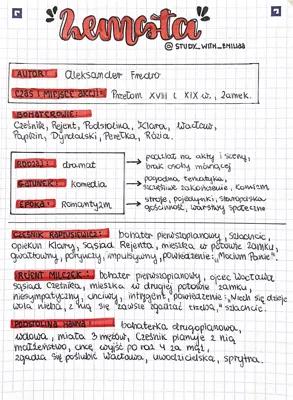 Zemsta
@STUDY_WITH_EMILIAA
AUTOR: Aleksander Fredro
CZAS I MIEJSCE AKCJI: Przełom XVIII i XIX w., Zamek.
BOHATEROWIE:
Cześnik, Rejent, Podstolina, Klara, Wacław,
Papkin, Dyndalski, Perełka, Rózia.
RODZAJ: dramat → podział na akty i sceny,
brak osoby mówiącej
GATUNEK: komedia → pogodna tematyka,
szczęśliwe zakończenie, komizm
EPOKA: Romantyzm → stroje, pojedynki, staropolska
gościnność, warstwy społeczne
CZEŚNIK RAPTUSIEWICZ: bohater pierwszoplanowy, szlachcic,
opiekun Klary, sąsiad Rejenta, mieszka w połowie zamku,
gwałtowny, porywczy, impulsywny, powiedzenie: „Mocium Panie".
REJENT MILCZEK: bohater pierwszoplanowy, ojciec Wacława
sąsiad Cześnika, mieszka w drugiej połowie zamku,
niesympatyczny, chciwy, intrygant, powiedzenie: „Niech się dzieje
wola nieba, z nią się zawsze zgadzać trzeba," szlachcic.
PODSTOLINA HANNA: bohaterka drugoplanowa,
wdowa, miała 3 mężów, Cześnik planuje z nią
małżeństwo, chce wyjść po raz 4 za mąż,
zgadza się poślubić Wacława, uwodzicielska, sprytna.